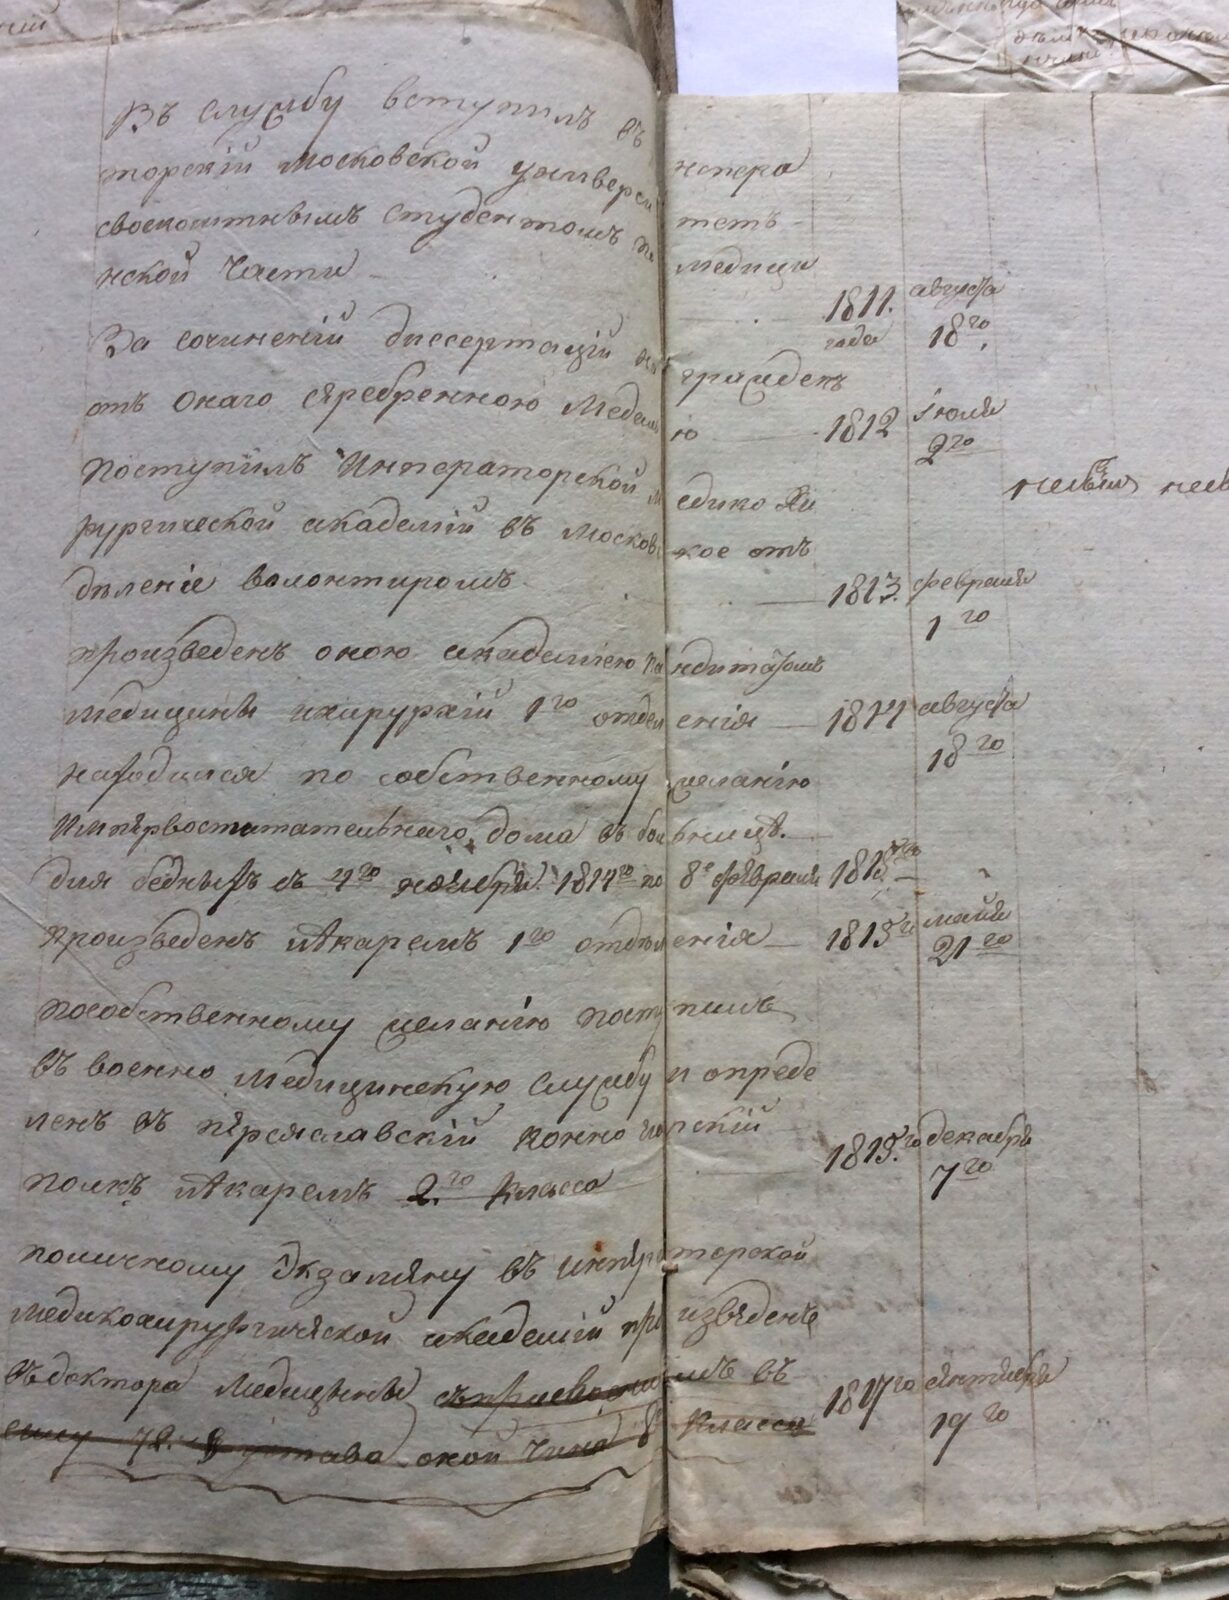 Въ службу вступилъ въ Импера
торскій московской универси тетъ
своекоштнымъ студентомъ по медици
нской части 1811. августа
года 18го
За сочиненій диссертацій награжденъ
отъ онаго сяребренною медалью 1812 іюля
2го
поступилъ Императорской медико хи
рургической академій въ московское от
дѣленіе волонтиромъ 1813. февраля
1го
произведенъ оною академіею кандитатомъ
медицины ихирургій 1го отделенія 1814 августа
18го
находился по собственному желанію
Импервоспитательнаго дома въ больницѣ
для бѣдныхъ съ 4го ноября 1814го по 8е февраля 1815го
произведенъ лѣкаремъ 1го отдѣленія 1815го майя
21го
пособственному желанію поступилъ
въ военно медицинскую службу и опреде
ленъ въ пѣрѣяславскій конно егерскій
полкъ лѣкаремъ 2го класса 1815.го декабря
7го
поличному экзамяну въ императорской
медикохирургичяской академій произвѣденъ
въдоктора медицины въ 1817го сянтября
19го
устава оной чина 8 класса